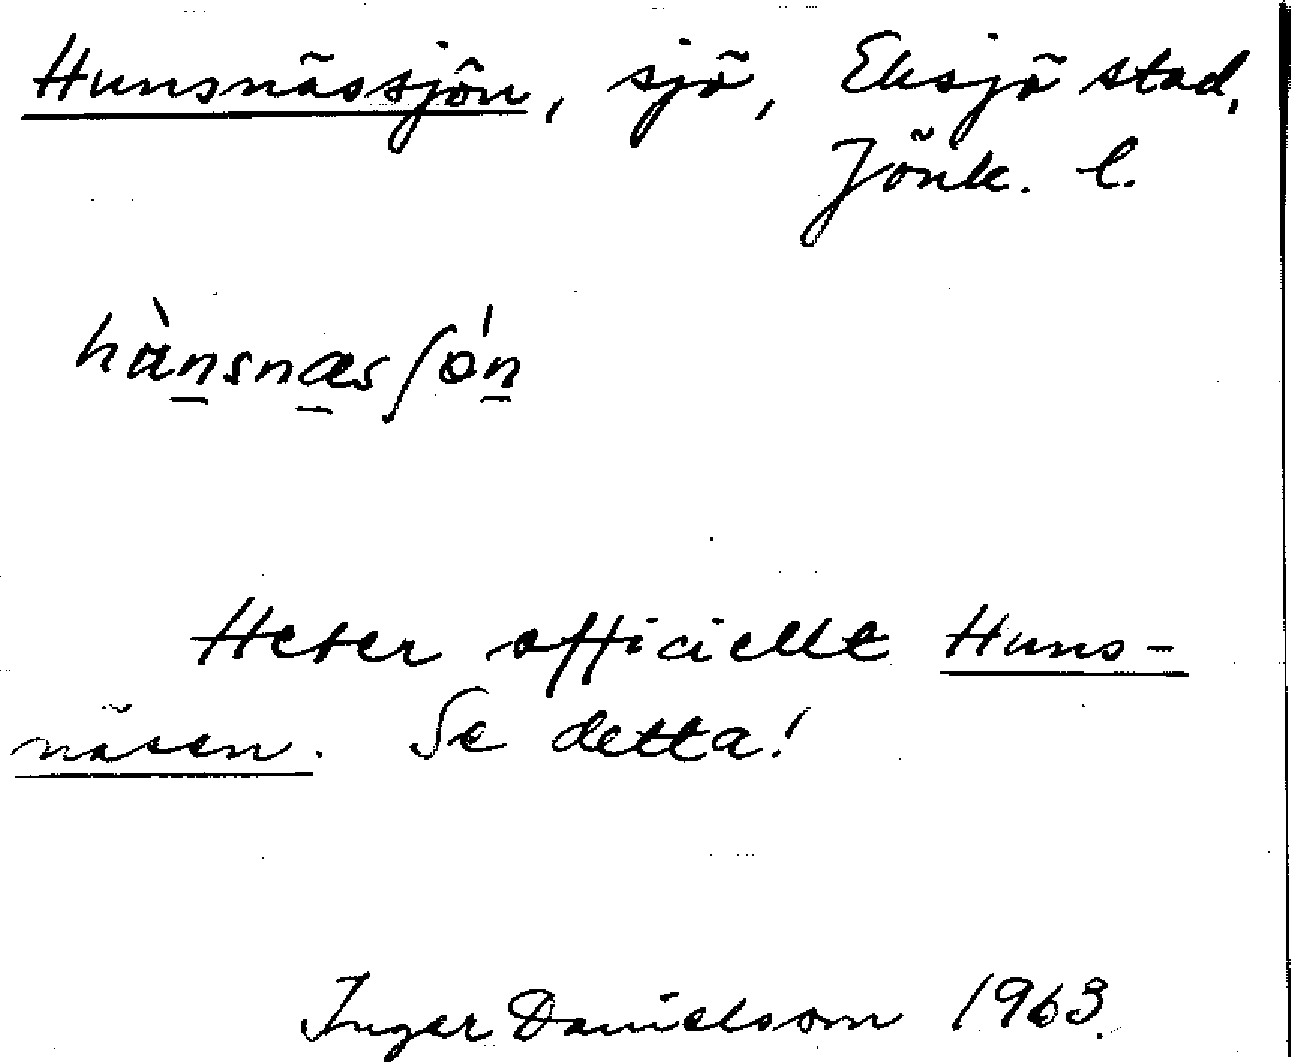 Hunsnässjön, sjö, Eksjö stad,
Jönk. l.
hànsnæsʃǿn
Heter officiellt Huns-
näsen. Se detta!
Inger Danielsom 1963.